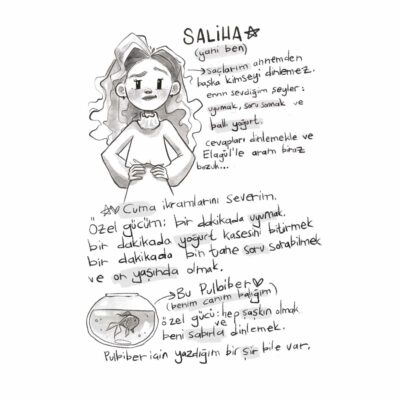 SALİHA
(yani ben)
saçlarım annemden
başka kimseyi dinlemez.
en sevdiğim şeyler:
uyumak, soru sormak ve
ballı yoğurt.
cevapları dinlemekle ve
Elagül'le aram biraz
bozuk...
Cuma ikramlarını severim.
Özel gücüm: bir dakikada uyumak,
bir dakikada yoğurt kasesini bitirmek
bir dakikada bin tane soru sorabilmek
ve on yaşında olmak.
Bu Pulbiber
(benim canım balığım)
özel gücü: hep şaşkın olmak
ve
beni sabırla dinlemek.
Pulbiber için yazdığım bir şiir bile var.